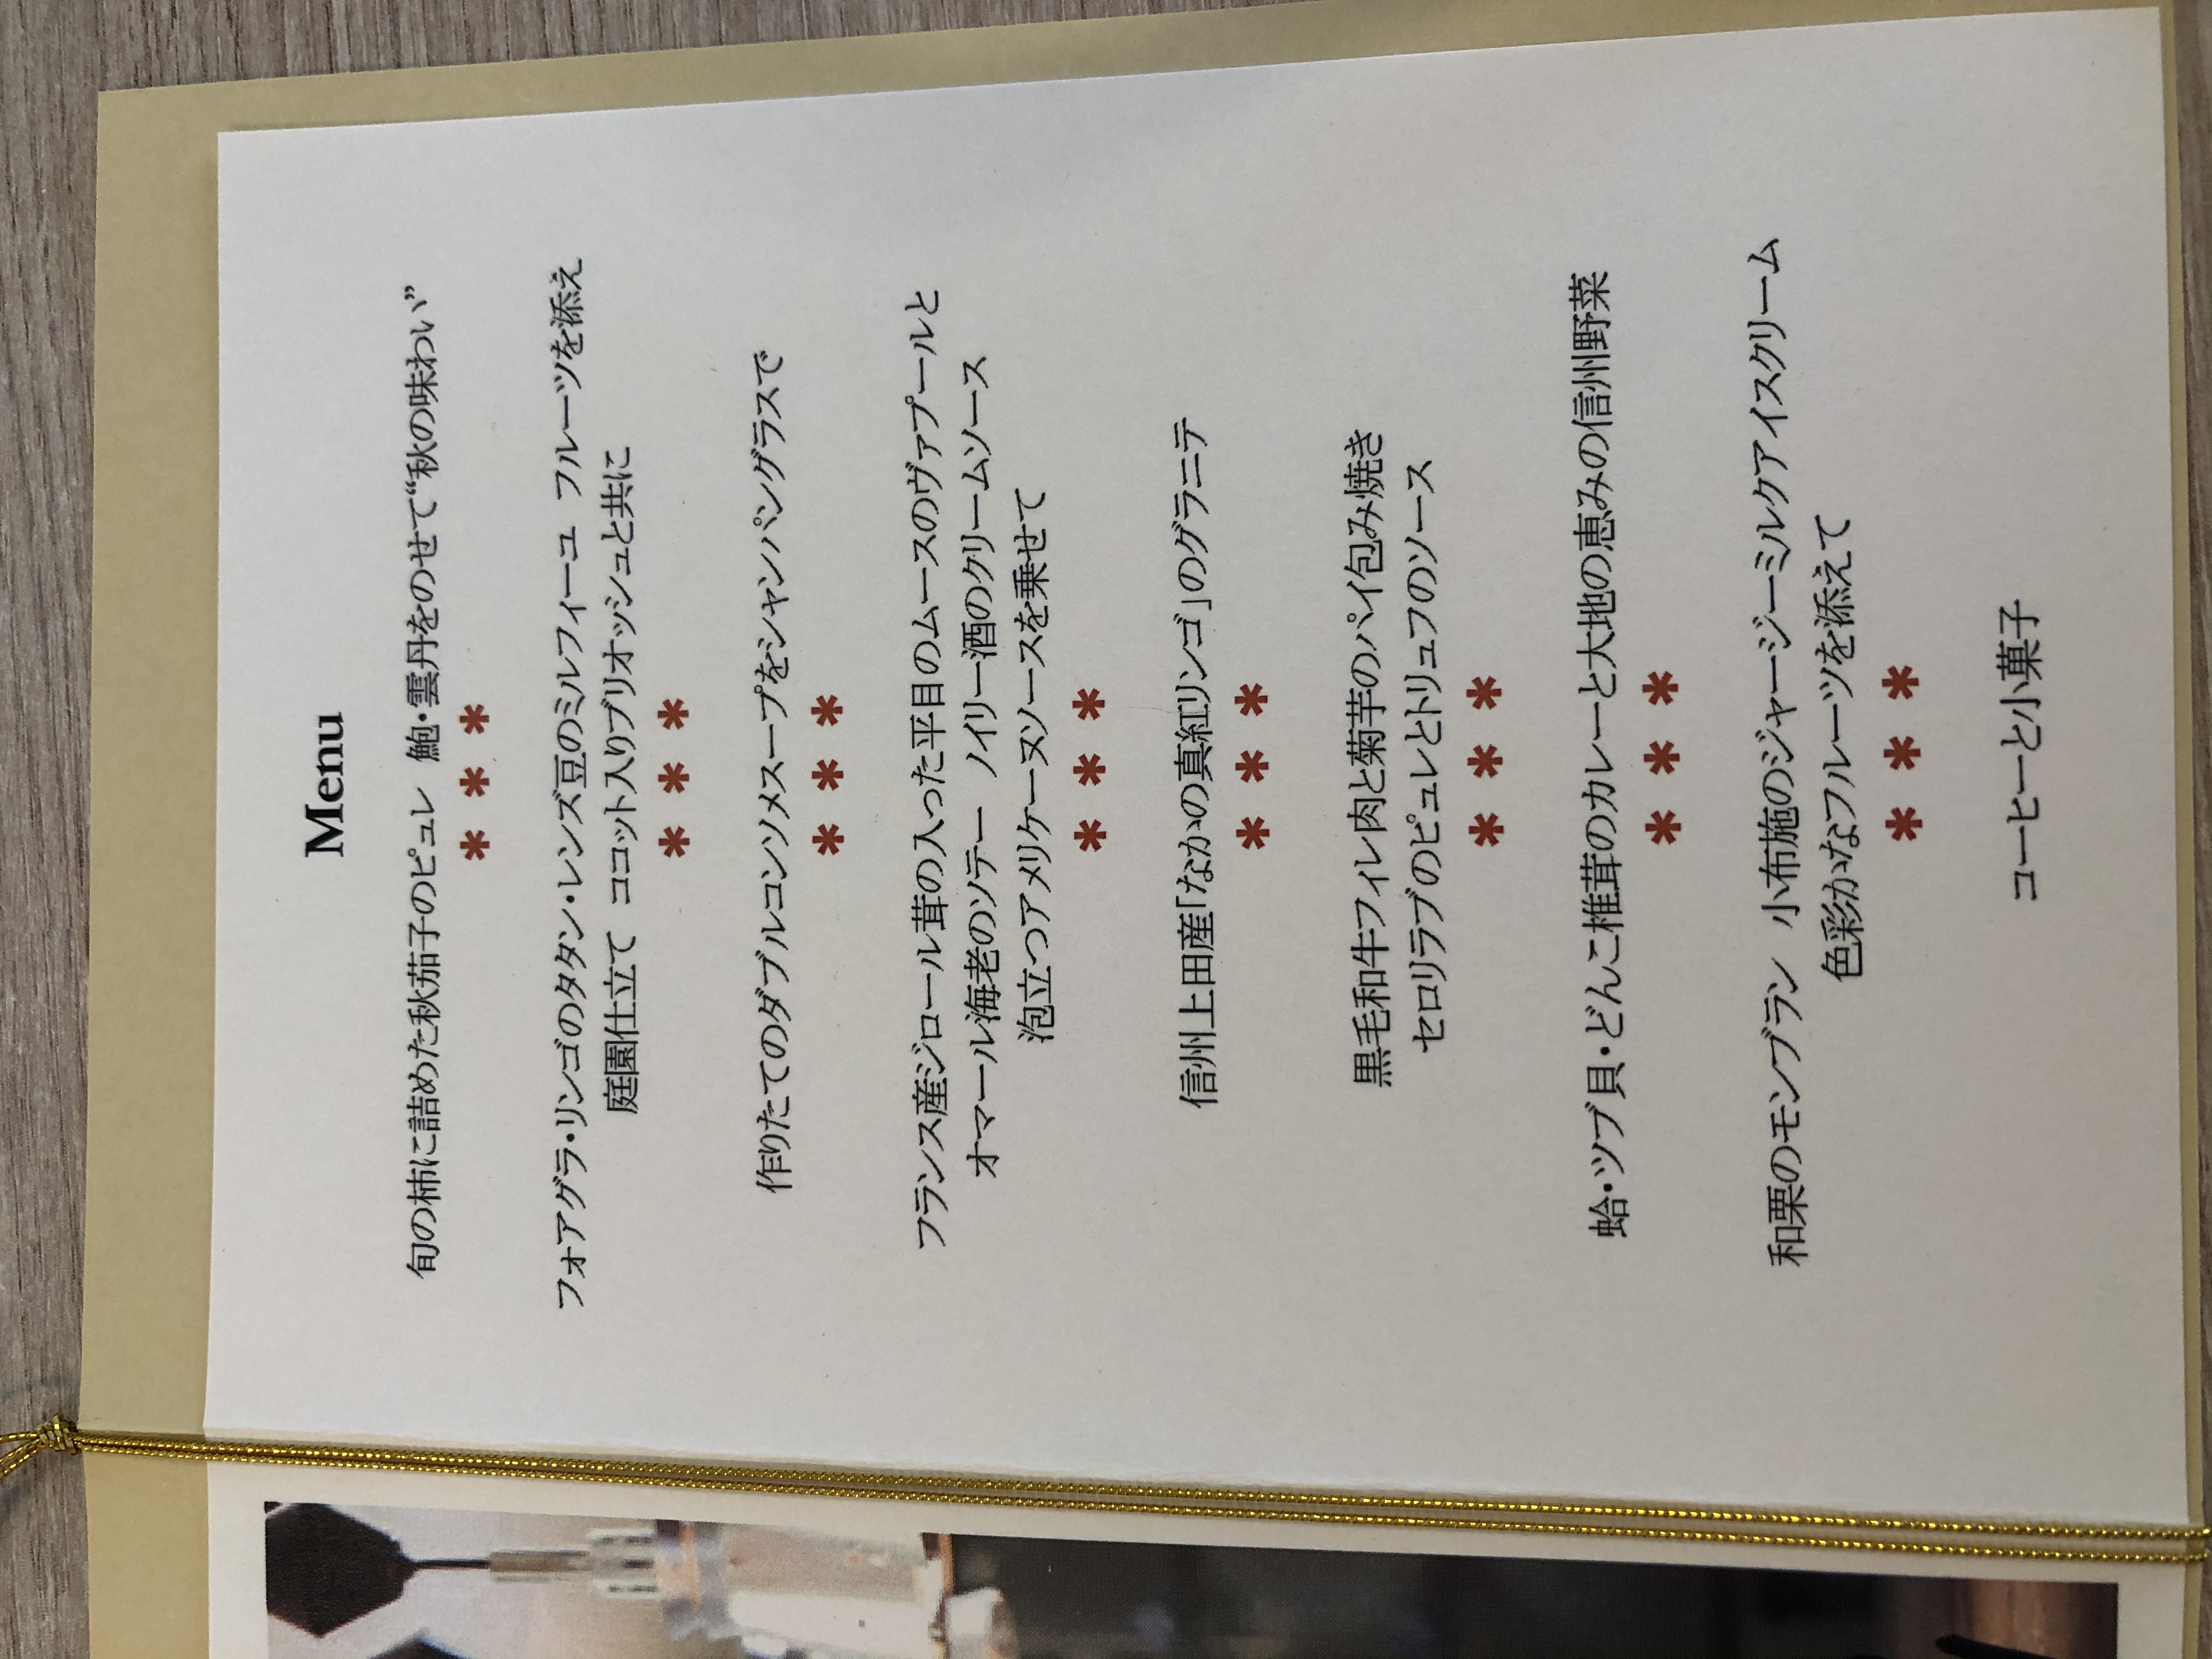 Menu
旬の柿に詰めた秋茄子のピュレ 鮑・雲丹をのせて“秋の味わい”
* * *
フォアグラ・リンゴのタタン・レンズ豆のミルフィーユ フルーツを添え
庭園仕立て ココット入りブリオッシュと共に
* * *
作りたてのダブルコンソメスープをシャンパングラスで
* * *
フランス産ジロール茸の入った平目のムースのヴァプールと
オマール海老のソテー ノイリー酒のクリームソース
泡立つアメリケーヌソースを乗せて
* * *
信州上田産「なかの真紅リンゴ」のグラニテ
* * *
黒毛和牛フィレ肉と菊芋のパイ包み焼き
セロリラブのピュレとトリュフのソース
* * *
蛤・ツブ貝・どんこ椎茸のカレーと大地の恵みの信州野菜
* * *
和栗のモンブラン 小布施のジャージーミルクアイスクリーム
色彩かなフルーツを添えて
* * *
コーヒーと小菓子